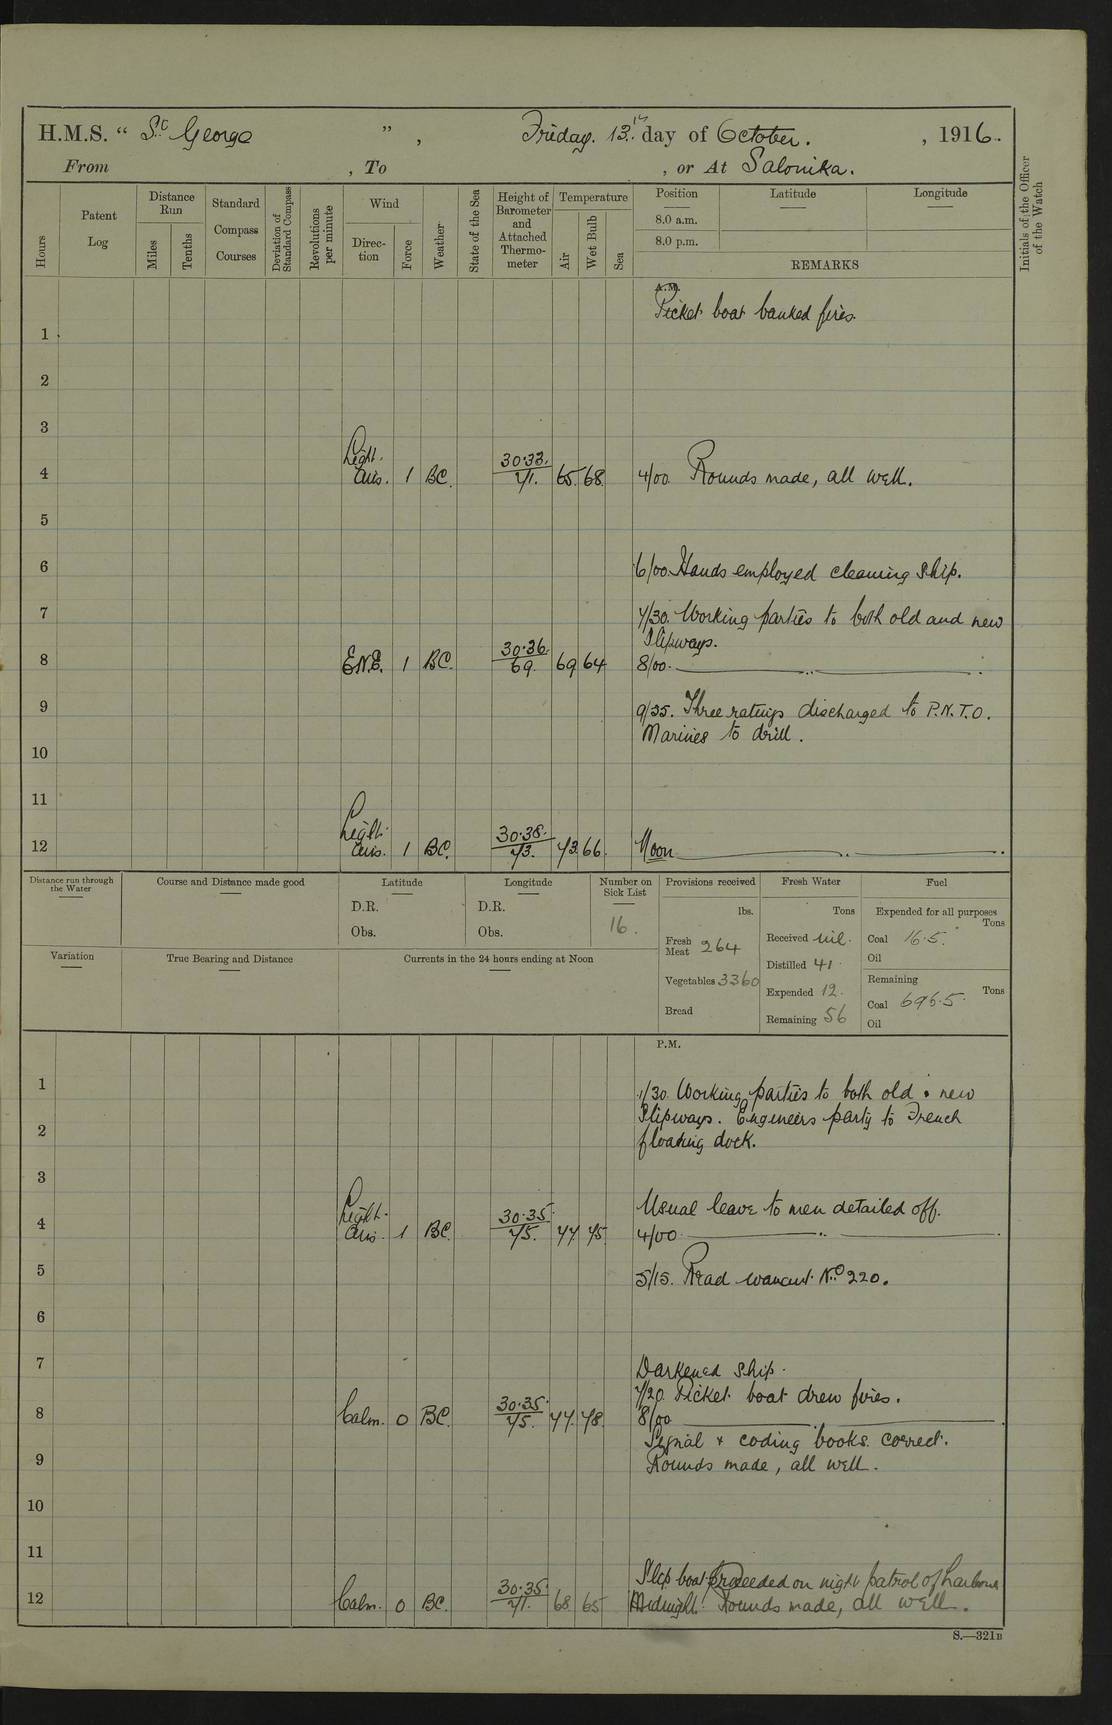 H.M.S. “ St George ” , Friday. 13th day of October. , 1916.
From , To , or At Salonika.
Initials of the Officer of the Watch
Hours
Patent Log
Distance Run
Miles
Tenths
Standard Compass Courses
Deviation of Standard Compass
Revolutions per minute
Wind
Direc-tion
Force
Weather
State of the Sea
Height of Barometer and Attached Thermo-meter
Temperature
Air
Wet Bulb
Sea
Position
Latitude
Longitude
8.0 a.m.
8.0 p.m.
REMARKS
A.M.
Picket boat banked fires.
1
2
3
4 Light Airs. 1 BC. 30.33. 71. 65. 68. 4/00 Rounds made, all well.
5
6 6/00 Hands employed cleaning Ship.
7 7/30. Working parties to both old and new
Slipways.
8 E.N.E. 1 BC. 30.36. 69. 69 64 8/00.
9 9/35. Three ratings discharged to P.N.T.O.
Marines to drill.
10
11
12 Light Airs. 1 BC. 30.38. 73. 73. 66. Noon
Distance run through the Water
Course and Distance made good
Latitude
D.R.
Obs.
Longitude
D.R.
Obs.
Number on Sick List
16.
Provisions received
lbs.
Fresh Meat 264
Vegetables 3360
Bread
Fresh Water
Tons
Received nil.
Distilled 41
Expended 12.
Remaining 56
Fuel
Expended for all purposes
Tons
Coal 16.5.
Oil
Remaining
Tons
Coal 696.5.
Oil
Variation
True Bearing and Distance
Currents in the 24 hours ending at Noon
P.M.
1 1/30. Working parties to both old & new
2 Slipways. Engineers party to French
floating dock.
3
Usual leave to men detailed off.
4 Light Airs. 1 BC. 30.35. 75. 77 75. 4/00
5 5/15. Read warrant No 220.
6
7 Darkened Ship.
7/20. Picket boat drew fires.
8 Calm. 0 BC. 30.35. 75. 77. 78. 8/00
Signal & coding books correct.
9 Rounds made, all well.
10
11
Slip boat proceeded on night patrol of harbour
12 Calm. 0 BC. 30.35. 71. 68 65 Midnight. Rounds made, all well.
S.—321B